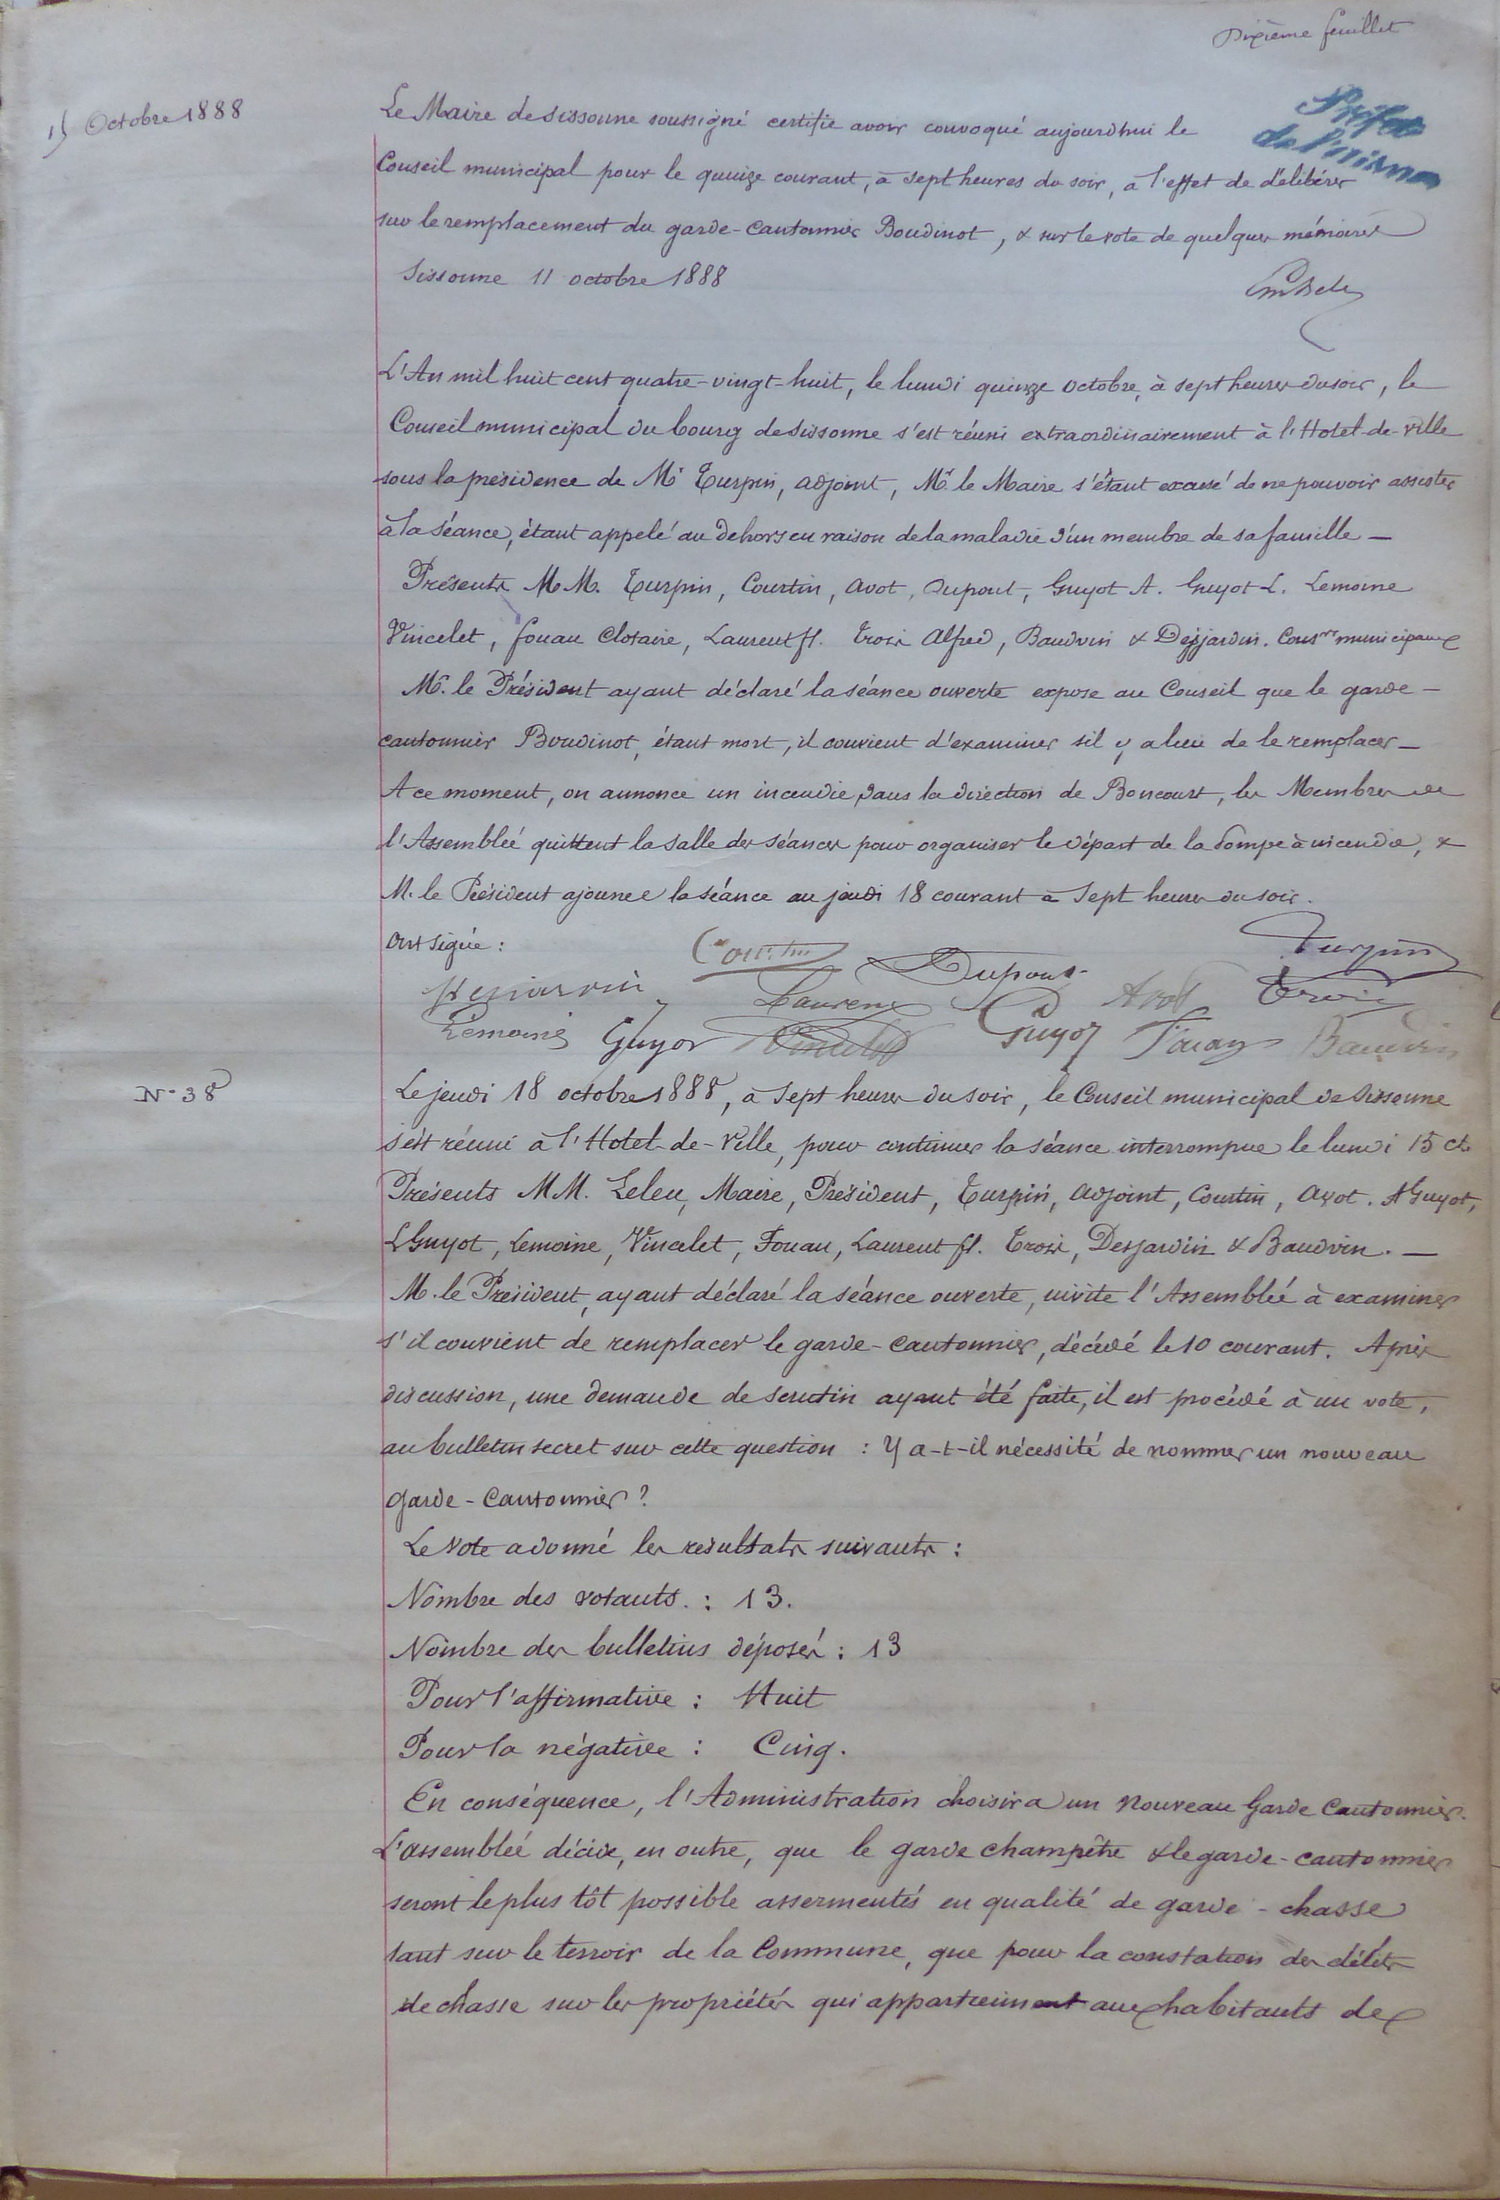 Dixième feuillet
15 Octobre 1888
Le Maire de Sissonne soussigné certifie avoir convoqué aujourdhui le
Conseil municipal pour le quinze courant, à sept heures du soir, à l'effet de délibérer
sur le remplacement du garde-cantonnier Boudinot, & sur le vote de quelques mémoires
Sissonne 11 octobre 1888
Préfet
de l'Aisne
L'An mil huit cent quatre-vingt-huit, le lundi quinze octobre, à sept heures du soir, le
Conseil municipal du bourg de Sissonne s'est réuni extraordinairement à l'Hotel-de-Ville
sous la présidence de Mr Turpin, adjoint, Mr. le Maire s'étant excusé de ne pouvoir assister
à la séance, étant appelé au dehors en raison de la maladie d'un membre de sa famille —
Présents MM. Turpin, Courtin, Avot, Dupont, Guyot A. Guyot L. Lemoine
Vincelet, fouau Clotaire, Laurent fl. Trois Alfred, Baudvin & Desjardin. Consrs municipaux
Mr. le Président ayant déclaré la séance ouverte expose au Conseil que le garde-
cantonnier Boudinot, étant mort, il convient d'examiner s'il y a lieu de le remplacer —
A ce moment, on annonce un incendie dans la direction de Boncourt, les Membres de
l'Assemblée quittent la salle des séances pour organiser le départ de la Pompe à incendie, &
M. le Président ajourne la séance au jeudi 18 courant à sept heures du soir.
Ont signé :
Courtin Dupont Turpin
Desjardin Laurent Avot Trois
Lemoine Guyot Vincelet Guyot Fouau Baudvin
N° 38
Le jeudi 18 octobre 1888, à sept heures du soir, le Conseil municipal de Sissonne
s'est réuni à l'Hotel-de-Ville, pour continuer la séance interrompue le lundi 15 ct.
Présents MM. Leleu, Maire, Président, Turpin, Adjoint, Courtin, Avot. A Guyot,
L Guyot, Lemoine, Vincelet, Fouau, Laurent fl. Trois, Desjardin & Baudvin. —
M. le Président, ayant déclaré la séance ouverte, invite l'Assemblée à examiner
s'il convient de remplacer le garde-cantonnier, décédé le 10 courant. Après
discussion, une demande de scrutin ayant été faite, il est procédé à un vote,
au bulletin secret sur cette question : Y a-t-il nécessité de nommer un nouveau
garde-cantonnier ?
Le vote a donné les resultats suivants :
Nombre des votants. : 13.
Nombre des bulletins déposés : 13
Pour l'affirmative : Huit
Pour la négative : Cinq.
En conséquence, l'Administration choisira un nouveau Garde Cantonnier.
L'assemblée décide, en outre, que le garde champêtre & le garde-cantonnier
seront le plus tôt possible assermentés en qualité de garde-chasse
tant sur le terroir de la Commune, que pour la constation des délits
de chasse sur les propriétés qui appartiennent aux habitants de